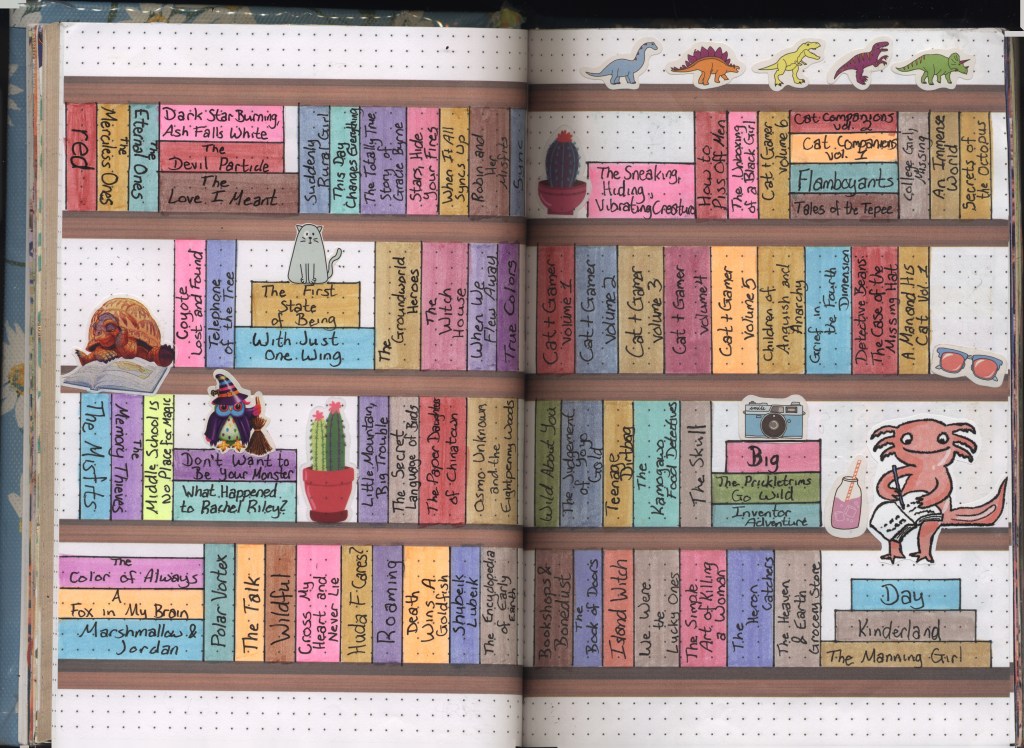 red
The Merciless Ones
The Eternal Ones
Dark Star Burning,
Ash Falls White
The
Devil Particle
The
Love I Meant
Suddenly
Rural Girl
This Day
Changes Everything
The Totally True
Story of
Gracie Byrne
Stars, Hide
Your Fires
When It All
Syncs Up
Robin and
Her
Misfits
Sync
Coyote
Lost and Found
Telephone
of the Tree
The First
State
of Being
With Just
One Wing
The
Groundworld
Heroes
The
Witch
House
When We
Flew Away
True Colors
The Misfits
The
Memory Thieves
Middle School Is
No Place For Magic
Don't Want to
Be Your Monster
What Happened
to Rachel Riley?
Little Mountain,
Big Trouble
The Secret
Language of Birds
The Paper Daughters
of Chinatown
Osmo Unknown
and the
Eightpenny Woods
The
Color of Always
A
Fox in My Brain
Marshmallow &
Jordan
Polar Vortex
The Talk
Wildful
Cross My
Heart and
Never Lie
Huda F Cares?
Roaming
Death
Wins A
Goldfish
Shubeik
Lubeik
The Encyclopedia
of Early
Earth
The Sneaking,
Hiding,
Vibrating Creature
How to
Piss Off Men
The Unboxing
of a Black Girl
Cat + Gamer
Volume 6
Cat Companions
vol. 2
Cat Companions
vol. 1
Flamboyants
Tales of the Tepee
College Girl,
Missing
An Immense
World
Secrets of
the Octopus
Cat + Gamer
Volume 1
Cat + Gamer
Volume 2
Cat + Gamer
Volume 3
Cat + Gamer
Volume 4
Cat + Gamer
Volume 5
Children of
Anguish and
Anarchy
Grief in
the Fourth
Dimension
Detective Beans:
The Case of the
Missing Hat
A Man and His
Cat Vol. 1
Wild About You
The Judgement
of yoyo
Gold
Teenage
Dirtbag
The
Kamogawa
Food Detectives
The Skull
smile
Big
The Prickletrims
Go Wild
Inventor
Adventure
Bookshops &
Bonedust
The
Book of Doors
Island Witch
We Were
the
Lucky Ones
The Simple
Art of Killing
a Woman
The
Heron
Catchers
The Heaven
& Earth
Grocery Store
Day
Kinderland
The Manning Girl